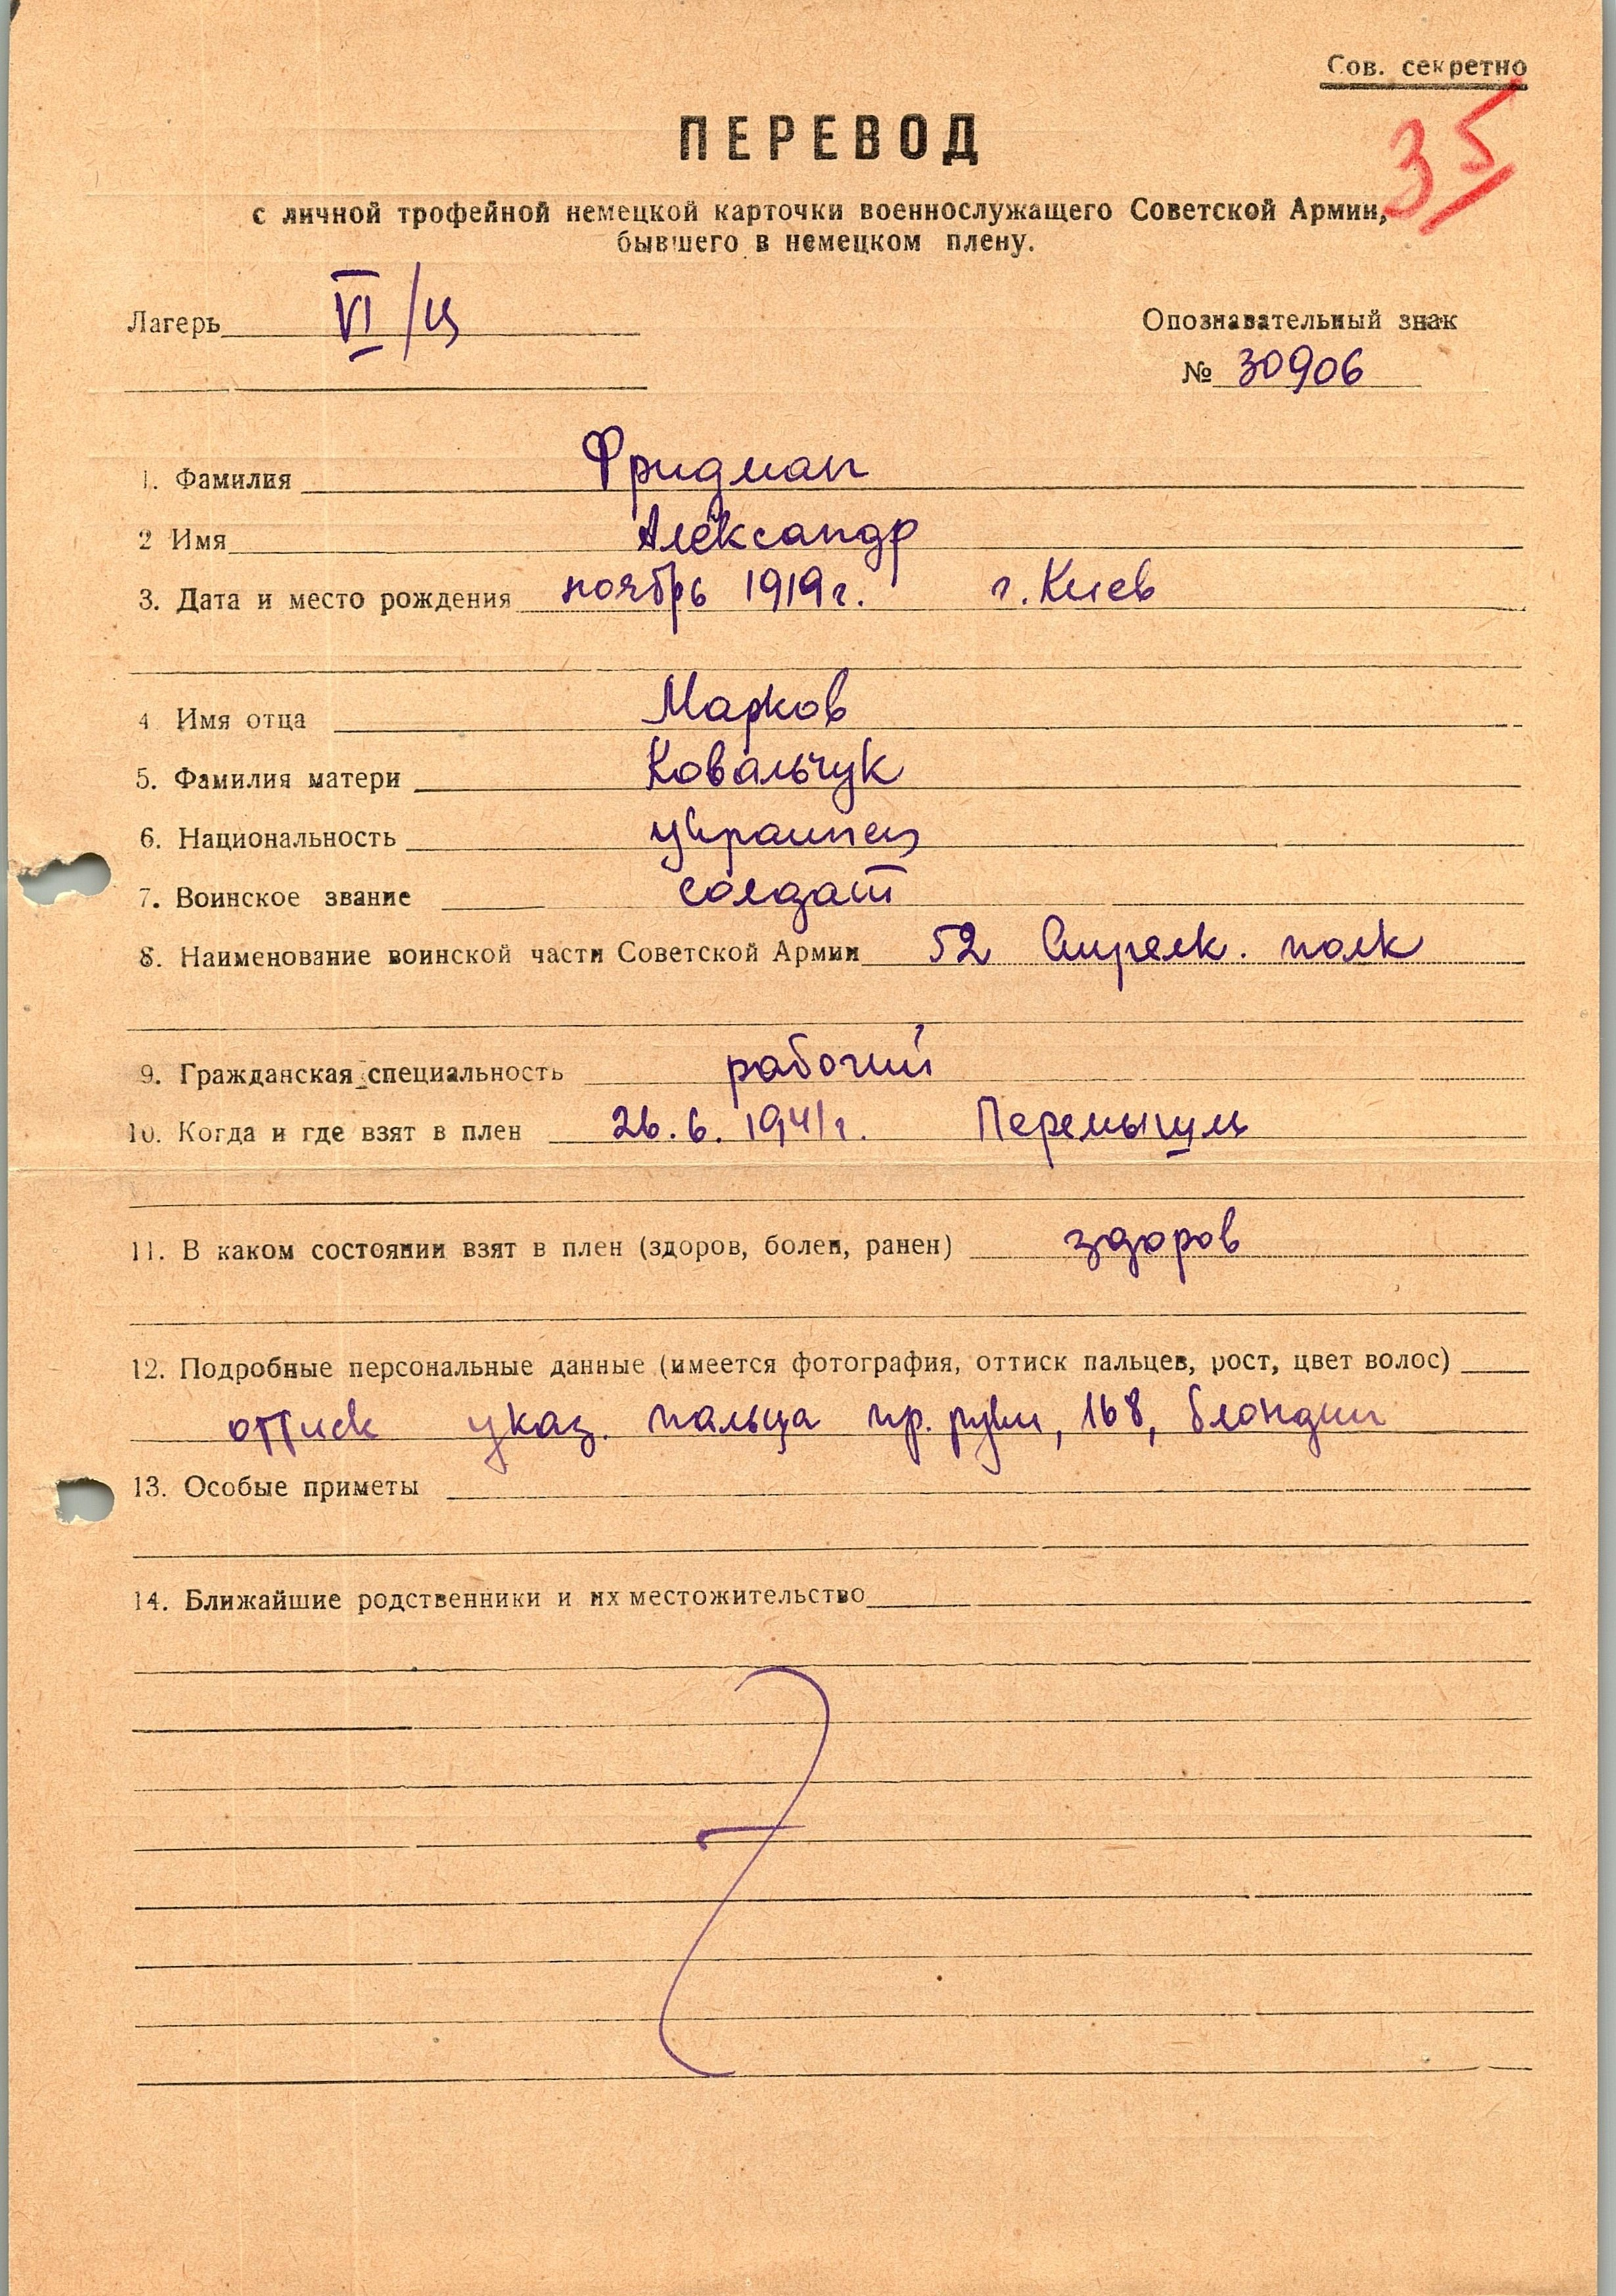 Сов. секретно
35
ПЕРЕВОД
с личной трофейной немецкой карточки военнослужащего Советской Армии,
бывшего в немецком плену.
Лагерь VI/Ц
Опознавательный знак
№ 30906
1. Фамилия Фридман
2 Имя Александр
3. Дата и место рождения ноябрь 1919 г. г. Киев
4 Имя отца Марков
5. Фамилия матери Ковальчук
6. Национальность украинец
7. Воинское звание солдат
8. Наименование воинской части Советской Армии 52 Стрелк. полк
9. Гражданская специальность рабочий
10. Когда и где взят в плен 26.6.1941 г. Перемышль
11. В каком состоянии взят в плен (здоров, болен, ранен) здоров
12. Подробные персональные данные (имеется фотография, оттиск пальцев, рост, цвет волос)
оттиск указ. пальца пр. руки, 168, блондин
13. Особые приметы
14. Ближайшие родственники и их местожительство